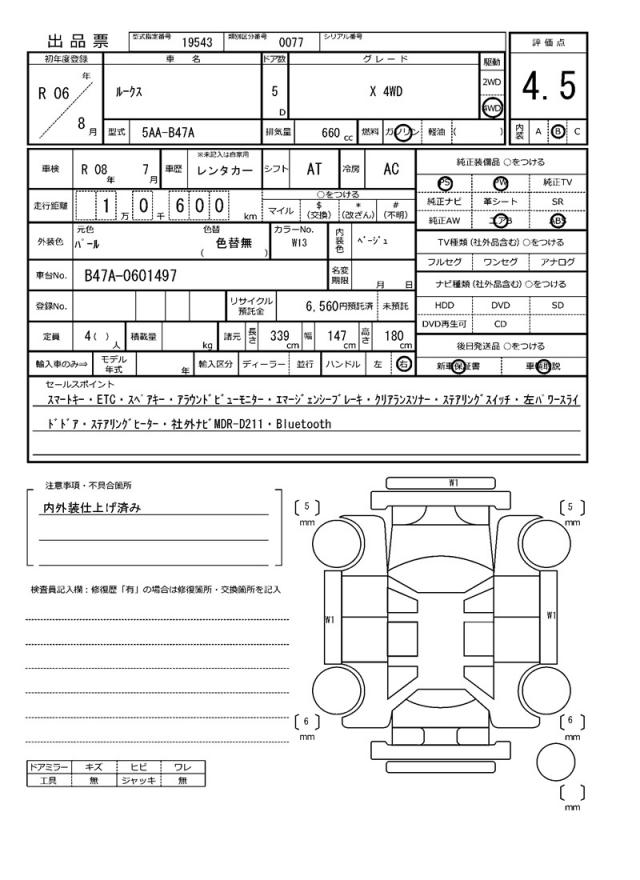 出品票
型式指定番号 19543 類別区分番号 0077 シリアル番号
初年度登録 車名 ドア数 グレード 駆動 評価点
R 06 年 8 月
ルークス
5 D
X 4WD
2WD
4WD
4.5
型式 5AA-B47A 排気量 660 cc 燃料 ガソリン 軽油 ( )
内装 A B C
車検 R 08 年 7 月 車歴 ※未記入は自家用 レンタカー シフト AT 冷房 AC
純正装備品 ○をつける
PS PW 純正TV
純正ナビ 革シート SR
純正AW エアB ABS
走行距離 1 万 0 千 6 0 0 km
○をつける
マイル $ (交換) * (改ざん) # (不明)
外装色 元色 パール 色替 ( 色替無 ) カラーNo. W13 内装色 ベージュ
TV種類 (社外品含む) ○をつける
フルセグ ワンセグ アナログ
車台No. B47A-0601497 名変期限 月 日
ナビ種類 (社外品含む) ○をつける
HDD DVD SD
DVD再生可 CD
登録No. リサイクル預託金 6,560円預託済 未預託
定員 4( ) 人 積載量 kg 諸元 長さ 339 cm 幅 147 cm 高さ 180 cm
後日発送品 ○をつける
新車保証書 車輌取説
輸入車のみ⇒ モデル年式 年 輸入区分 ディーラー 並行 ハンドル 左 右
セールスポイント
スマートキー・ETC・スペアキー・アラウンドビューモニター・エマージェンシーブレーキ・クリアランスソナー・ステアリングスイッチ・左パワースライ
ドドア・ステアリングヒーター・社外ナビMDR-D211・Bluetooth
注意事項・不具合箇所
内外装仕上げ済み
検査員記入欄：修復歴「有」の場合は修復箇所・交換箇所を記入
W1
[ 5 ] mm
[ 5 ] mm
W1
W1
[ 6 ] mm
[ 6 ] mm
[ ] mm
ドアミラー キズ ヒビ ワレ
工具 無 ジャッキ 無